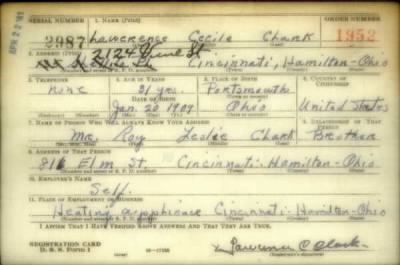 SERIAL NUMBER 1. NAME (Print) ORDER NUMBER
2987 Lawerence Cecile Clark 1952
APR 22 '41
2124 St
2. ADDRESS (Print) Cincinnati, Hamilton-Ohio
3. TELEPHONE 4. AGE IN YEARS 5. PLACE OF BIRTH 6. COUNTRY OF CITIZENSHIP
none 31 yrs. Portsmouth
DATE OF BIRTH
Jan. 20 1909 Ohio United States
7. NAME OF PERSON WHO WILL ALWAYS KNOW YOUR ADDRESS 8. RELATIONSHIP OF THAT PERSON
Mr. Roy Leslie Clark Brother
9. ADDRESS OF THAT PERSON
816 Elm St. Cincinnati-Hamilton-Ohio
10. EMPLOYER'S NAME
Self.
11. PLACE OF EMPLOYMENT OR BUSINESS
Heating Cincinnati-Hamilton-Ohio
I AFFIRM THAT I HAVE VERIFIED ABOVE ANSWERS AND THAT THEY ARE TRUE.
REGISTRATION CARD
D. S. S. Form 1 Lawrence C Clark